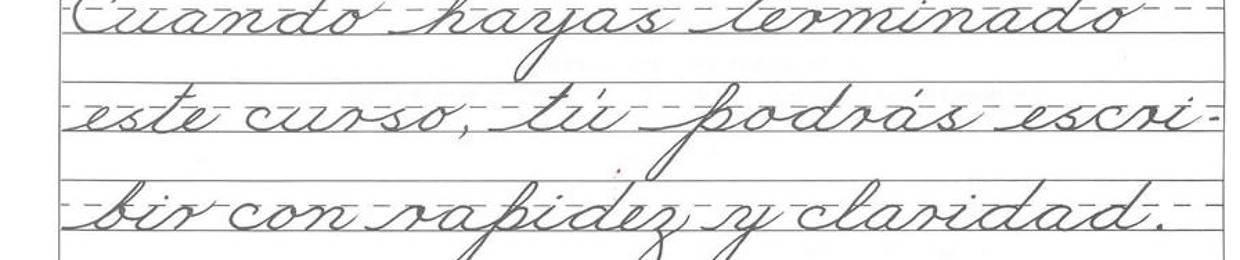 Cuando hayas terminado
este curso, tú podrás escri-
bir con rapidez y claridad.